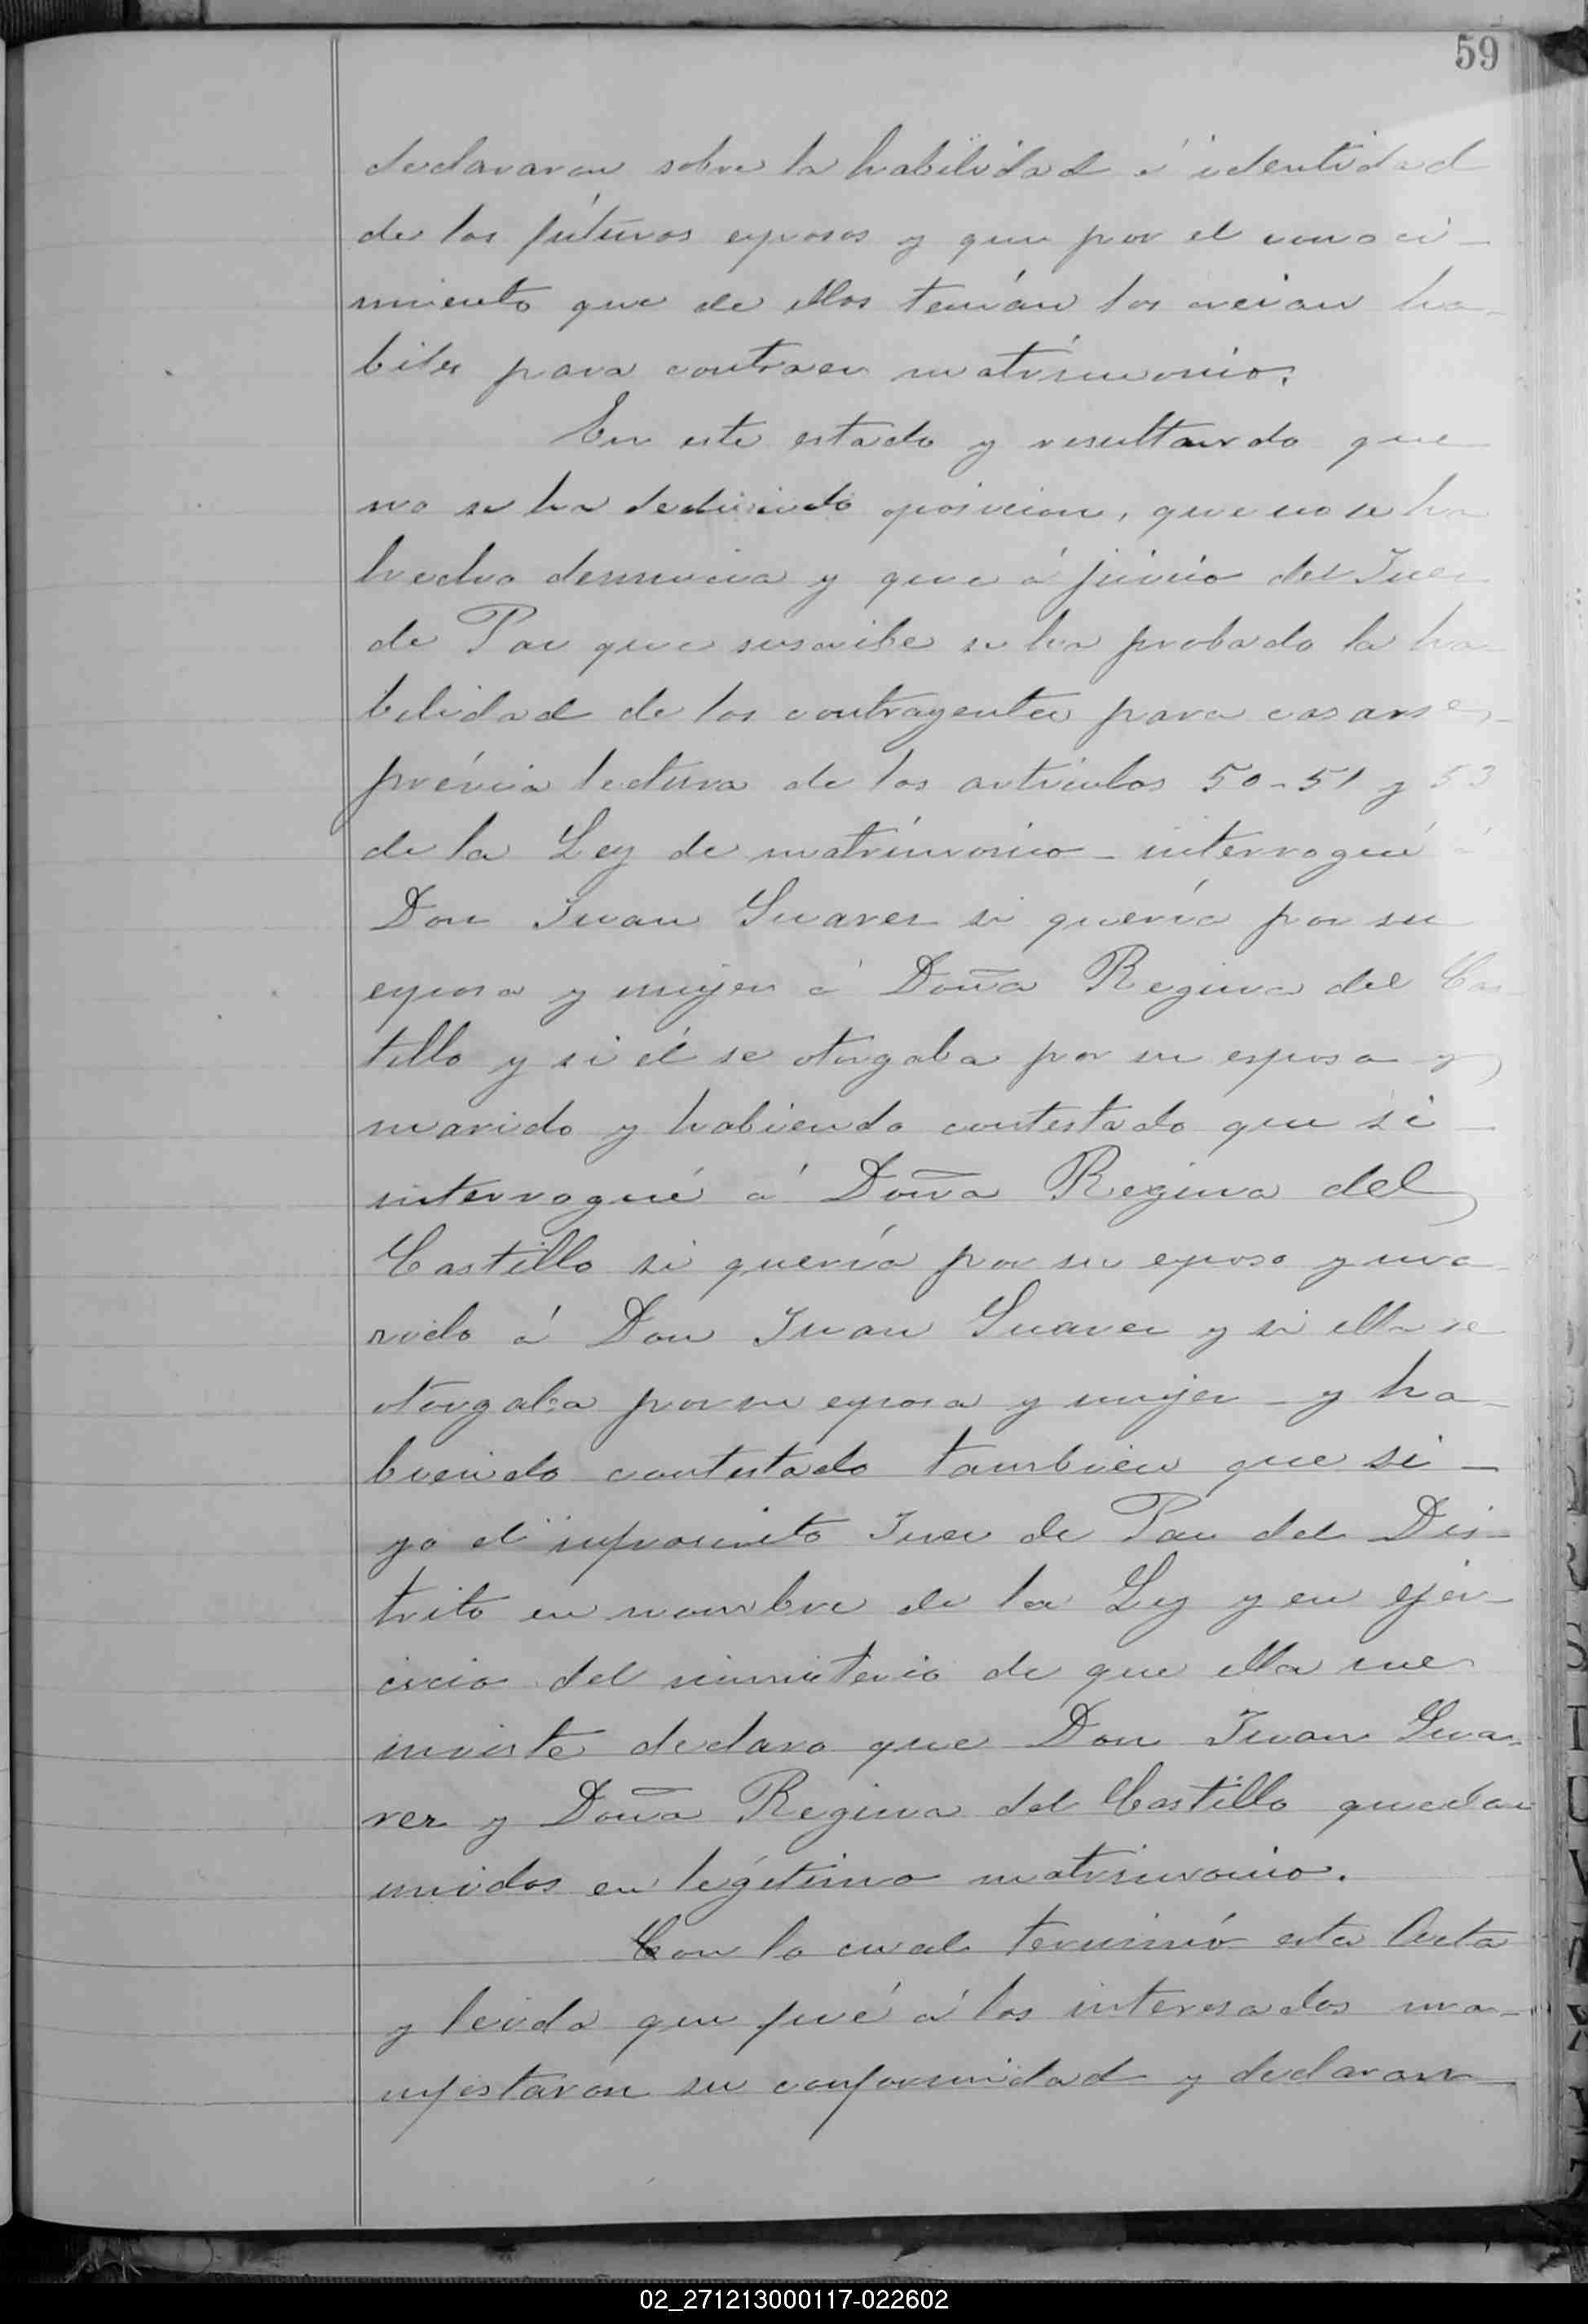 59
declararon sobre la habilidad é identidad
de los futuros esposos y que por el conoci-
miento que de ellos tenían los creian ha-
biles para contraer matrimonio.
En este estado y resultando que
no se ha deducido oposicion, que no se ha
hecho denuncia y que á juicio del Juez
de Paz que suscribe se ha probado la ha-
bilidad de los contrayentes para casarse,
prévia lectura de los articulos 50-51 y 53
de la Ley de matrimonio - interrogué á
Don Juan Suarez si quería por su
esposa y mujer á Doña Regina del Cas-
tillo y si él se otorgaba por su esposo y
marido y habiendo contestado que si -
interrogué á Doña Regina del
Castillo si quería por su esposo y ma-
rido á Don Juan Suarez y si ella se
otorgaba por su esposa y mujer - y ha-
biendo contestado tambien que si -
yo el infrascrito Juez de Paz del Dis-
trito en nombre de la Ley y en ejer-
cicio del ministerio de que ella me
inviste declaro que Don Juan Sua-
rez y Doña Regina del Castillo quedan
unidos en legítimo matrimonio.
Con lo cual terminó esta Acta
y leida que fué á los interesados ma-
nifestaron su conformidad y declararon
02_271213000117-022602